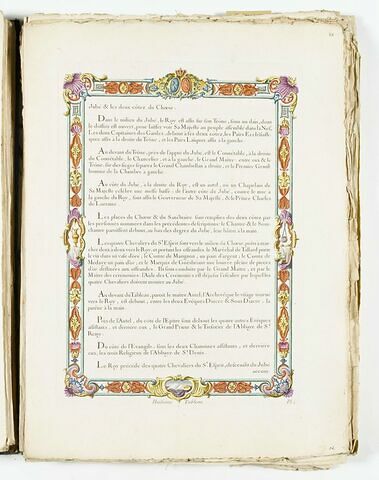 Jubé & les deux côtez du Chœur.
Dans le milieu du Jubé, le Roy est assis sur son Trône, sous un dais, dont
le dossier est ouvert, pour laisser voir Sa Majesté au peuple assemblé dans la Nef.
Les deux Capitaines des Gardes, debout à ses deux cotez, les Pairs Ecclesiast-
iques assis à la droite du Trône, et les Pairs Laïques assis à la gauche.
Au devant du Trône, près de l'appui du Jubé, est le Connétable, à la droite
du Connétable, le Chancelier, et à la gauche, le Grand Maitre, entre eux & le
Trône, sur des sieges separez le Grand Chambellan à droite, et le Premier Gentil-
homme de la Chambre à gauche.
Au côté du Jubé, à la droite du Roy, est un autel, où un Chapelain de
Sa Majesté célèbre une messe basse; de l'autre côté du Jubé, contre le mur à
la gauche du Roy, sont assis le Gouverneur de Sa Majesté, & le Prince Charles
de Lorraine
Les places du Chœur & du Sanctuaire sont remplies des deux côtez par
les personnes nommées dans les précédentes descriptions; le Chantre & le Sous-
chantre paroissent debout, au bas des degrez du Jubé, leur bâton à la main.
Les quatre Chevaliers du St. Esprit sont vers le milieu du Chœur, prêts à mar-
cher deux à deux vers le Roy, et portant les offrandes, le Maréchal de Tallard porte
le vin dans un vase d'or; le Comte de Matignon, un pain d'argent; le Comte de
Medavy un pain d'or; et le Marquis de Goësbriand une bourse pleine de pieces
d'or destinées aux offrandes. Ils sont conduits par le Grand Maitre, et par le
Maitre des ceremonies; l'Aide des Ceremonies est déja sur l'escalier par lequel les
quatre Chevaliers doivent monter au Jubé.
Au devant du Tableau, paroit le maitre Autel, l'Archevêque le visage tourné
vers le Roy, est debout, entre les deux Evêques Diacre & Sous Diacre, la
patene à la main.
Près de l'Autel, du côté de l'Epitre sont debout les quatre autres Evêques
assistants, et derriere eux, le Grand Prieur & le Trésorier de l'Abbaye de St.
Remy.
Du côté de l'Evangile, sont les deux Chanoines assistants, et derriere
eux, les trois Religieux de l'Abbaye de St. Denis.
Le Roy précédé des quatre Chevaliers du St. Esprit, descendit du Jubé
Tableau